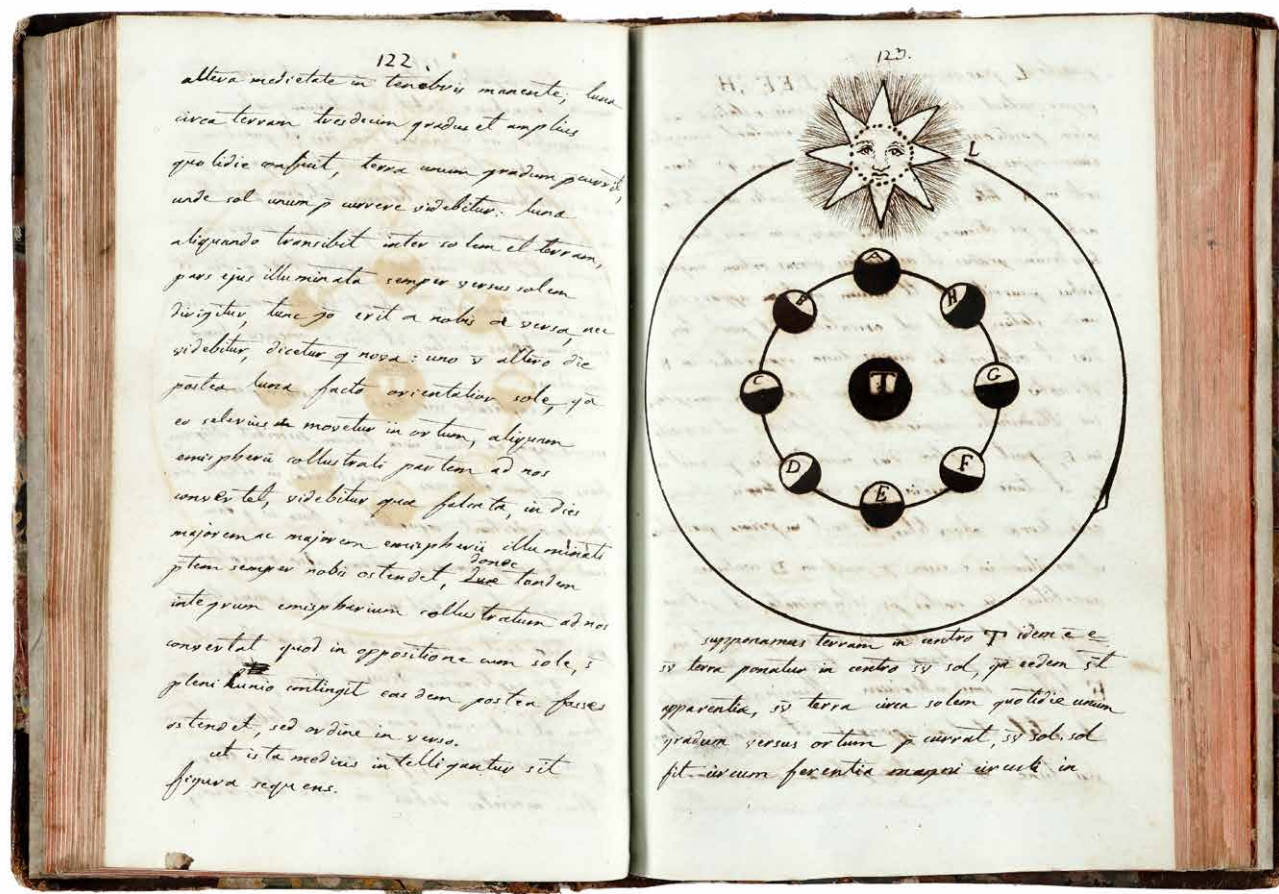 122.
altera medietate in tenebris manente; luna
circa terram tresdecim gradus et amplius
quotidie terra unum gradum pcurrit,
unde sol unum p̄ currere videbitur: luna
aliquando transibit inter solem et terram,
pars ejus illuminata semper versus solem
dirigitur, tunc erit a nobis a versa, nec
videbitur, dicetur q nova: uno v altero die
postea luna facta orientalior sole, qa
eo celerius movetur in ortum, aliquam
emispherii collustrati partem ad nos
convertet, videbitur quæ falcata, in dies
majorem ac majorem emispherii illuminati
ptem semper nobis ostendet, donec tandem
integrum emispherium collustratum ad nos
convertat quod in oppositione cum sole, s̄
plenilunio contingit easdem postea fasses
ostendet, sed ordine in verso.
ut ista medius intelligantur sit
figura sequens.
123.
L
A
B
H
C
T
G
D
F
E
supponamus terram in centro T idem ē e
sv terra ponatur in centro sv sol, qa eedem st̄
apparentia, sv terra circa solem quotidie unum
gradum versus ortum p̄ currat, sv sol. sol
sit circum ferentia magni circuli in